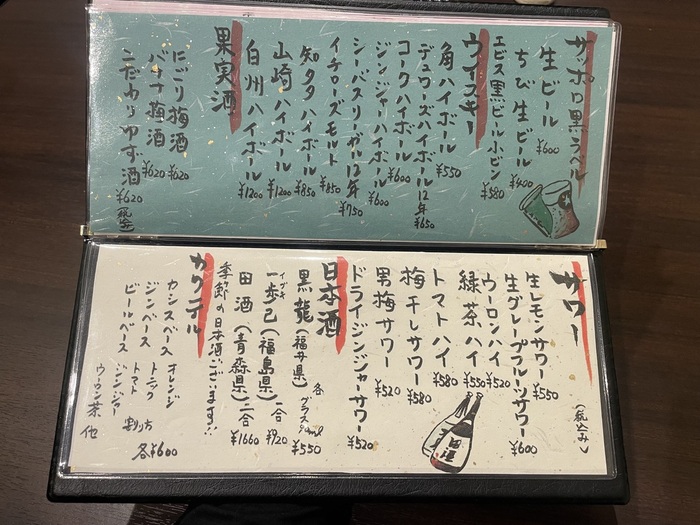 サッポロ黒ラベル
生ビール ¥600
ちび生ビール ¥400
エビス黒ビール小ビン ¥580
ウイスキー
角ハイボール ¥550
デュワーズハイボール12年 ¥650
コークハイボール ¥600
ジンジャーハイボール ¥600
シーバスリーガル12年 ¥750
イチローズモルト ¥850
知多ハイボール ¥850
山崎ハイボール ¥1200
白州ハイボール ¥1200
果実酒
にごり梅酒 ¥620
バナナ梅酒 ¥620
こだわりゆず酒 ¥620
(税込み)
サワー
(税込み)
生レモンサワー ¥550
生グレープフルーツサワー ¥600
ウーロンハイ ¥520
緑茶ハイ ¥550
トマトハイ ¥580
梅干しサワー ¥580
男梅サワー ¥520
ドライジンジャーサワー ¥520
日本酒
黒龍(福井県) 各グラス ¥550
イブキ
一歩己(福島県)一合 ¥920
田酒(青森県)一合 ¥1660
季節の日本酒ございます!!
カクテル
カシスベース オレンジ
ジンベース トニック
ビールベース トマト
ジンジャー
ウーロン茶 他
割り 各¥600